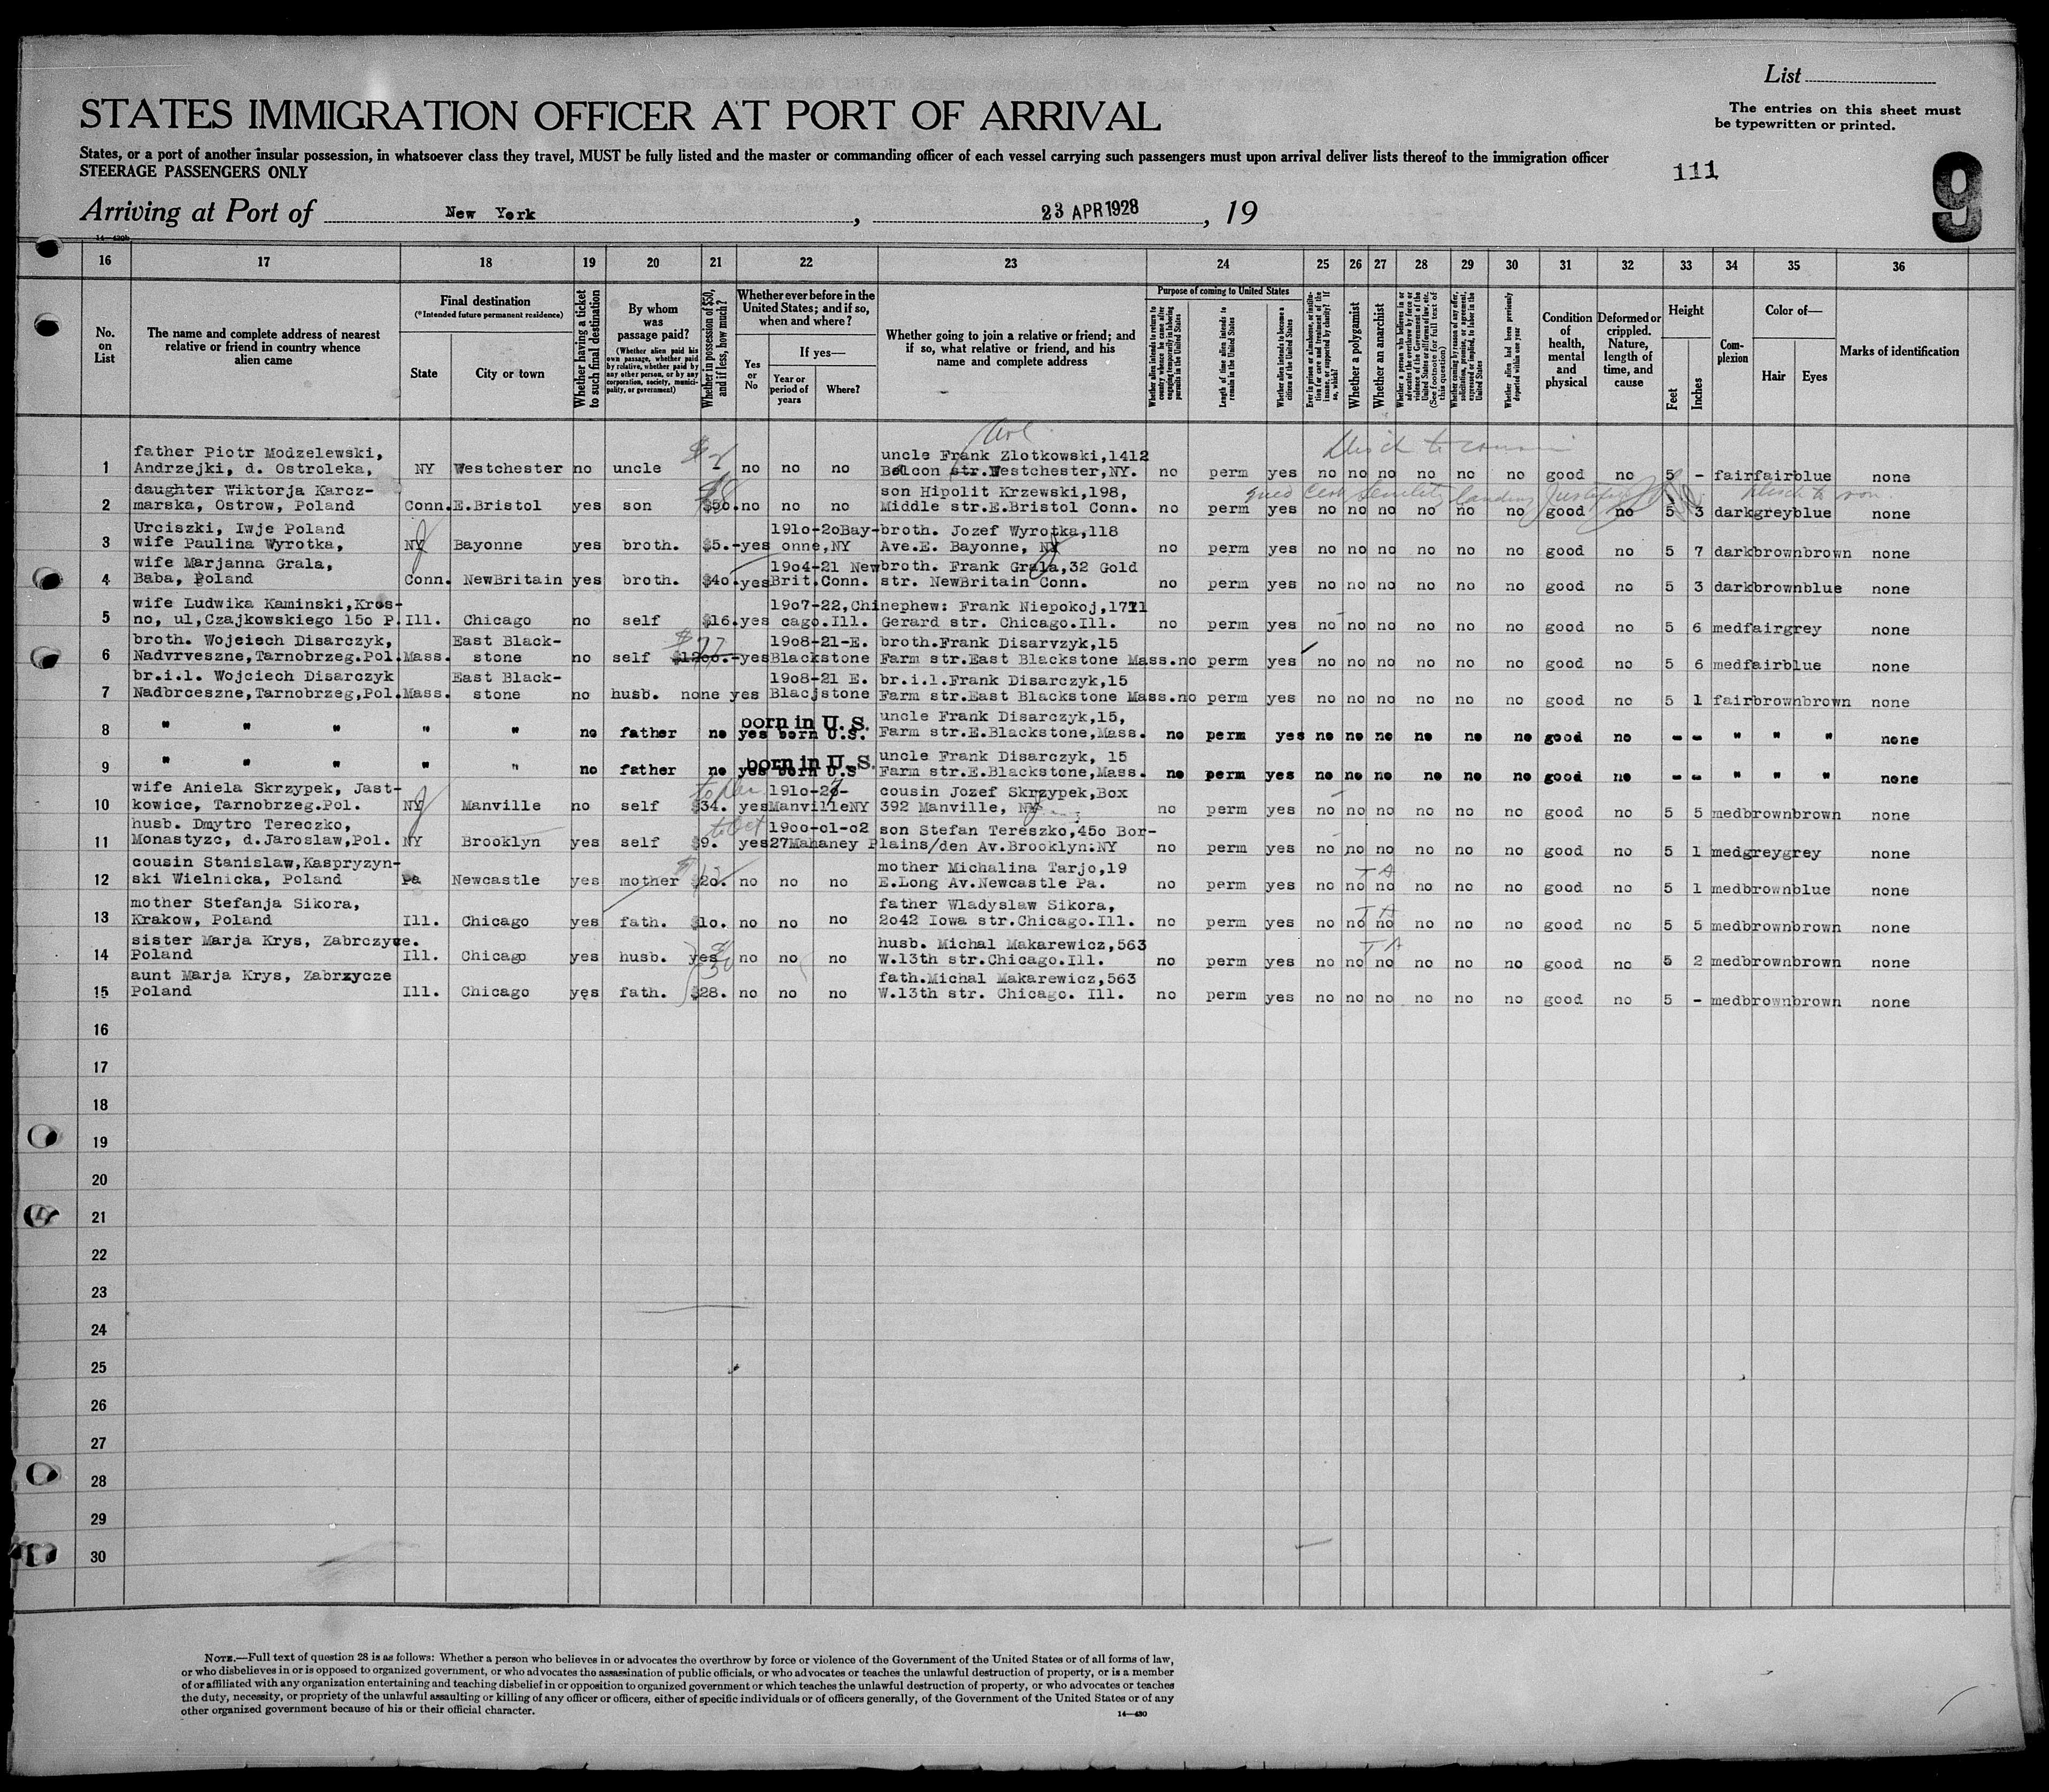 List
STATES IMMIGRATION OFFICER AT PORT OF ARRIVAL
The entries on this sheet must
be typewritten or printed.
States, or a port of another insular possession, in whatsoever class they travel, MUST be fully listed and the master or commanding officer of each vessel carrying such passengers must upon arrival deliver lists thereof to the immigration officer
STEERAGE PASSENGERS ONLY
111
9
Arriving at Port of New York, 23 APR 1928, 19
14—430b
16 17 18 19 20 21 22 23 24 25 26 27 28 29 30 31 32 33 34 35 36
No. on List
The name and complete address of nearest relative or friend in country whence alien came
Final destination
(*Intended future permanent residence)
State
City or town
Whether having a ticket to such final destination
By whom was passage paid?
(Whether alien paid his own passage, whether paid by relative, whether paid by any other person, or by any corporation, society, municipality, or government)
Whether in possession of $50, and if less, how much?
Whether ever before in the United States; and if so, when and where?
Yes or No
If yes—
Year or period of years
Where?
Whether going to join a relative or friend; and if so, what relative or friend, and his name and complete address
Purpose of coming to United States
Whether alien intends to return to country whence he came after engaging temporarily in laboring pursuits in the United States
Length of time alien intends to remain in the United States
Whether alien intends to become a citizen of the United States
Ever in prison or almshouse, or institution for care and treatment of the insane, or supported by charity? If so, which?
Whether a polygamist
Whether an anarchist
Whether a person who believes in or advocates the overthrow by force or violence of the Government of the United States or all forms of law, etc. (See footnote for full text of this question)
Whether coming by reason of any offer, solicitation, promise, or agreement, expressed or implied, to labor in the United States
Whether alien had been previously deported within one year
Condition of health, mental and physical
Deformed or crippled. Nature, length of time, and cause
Height
Feet
Inches
Complexion
Color of—
Hair
Eyes
Marks of identification
father Piotr Modzelewski, uncle Frank Zlotkowski,1412
1 Andrzejki, d. Ostroleka, NY Westchester no uncle no no no Balcon str.Westchester,NY. no perm yes no no no no no no good no 5 - fair fair blue none
daughter Wiktorja Karcz- son Hipolit Krzewski,198,
2 marska, Ostrow, Poland Conn. E.Bristol yes son $50. no no no Middle str.E.Bristol Conn. no perm yes no no no no no no good no 5 3 dark grey blue none
Urciszki, Iwje Poland 1910-20Bay- broth. Jozef Wyrotka,118
3 wife Paulina Wyrotka, NY Bayonne yes broth. $5.- yes onne,NY Ave.E. Bayonne, NY no perm yes no no no no no no good no 5 7 dark brown brown none
wife Marjanna Grala, 1904-21 New broth. Frank Grala,32 Gold
4 Baba, Poland Conn. NewBritain yes broth. $40. yes Brit.Conn. str. NewBritain Conn. no perm yes no no no no no no good no 5 3 dark brown blue none
wife Ludwika Kaminski,Kros- 1907-22,Chi nephew: Frank Niepokoj,1771
5 no, ul,Czajkowskiego 15o P. Ill. Chicago no self $16. yes cago.Ill. Gerard str. Chicago.Ill. no perm yes no no no no no no good no 5 6 med fair grey none
broth. Wojeiech Disarczyk, East Black- 1908-21-E. broth.Frank Disarvzyk,15
6 Nadvrveszne,Tarnobrzeg.Pol. Mass. stone no self $1200.- yes Blackstone Farm str.East Blackstone Mass. no perm yes no no no no no no good no 5 6 med fair blue none
br.i.l. Wojciech Disarczyk East Black- 1908-21 E. br.i.l.Frank Disarczyk,15
7 Nadbrceszne,Tarnobrzeg,Pol. Mass. stone no husb. none yes Blacjstone Farm str.East Blackstone Mass. no perm yes no no no no no no good no 5 1 fair brown brown none
born in U. S. uncle Frank Disarczyk,15,
8 " " " " " no father no yes born U.S. Farm str.E.Blackstone,Mass. no perm yes no no no no no no good no - - " " " none
born in U. S. uncle Frank Disarczyk, 15
9 " " " " " no father no yes born U.S Farm str.E.Blackstone,Mass. no perm yes no no no no no no good no - - " " " none
wife Aniela Skrzypek, Jast- cousin Jozef Skrzypek,Box
10 kowice, Tarnobrzeg.Pol. NY Manville no self $34. yes ManvilleNY 392 Manville, NY no perm yes no no no no no no good no 5 5 med brown brown none
husb. Dmytro Tereczko, 1900-01-02 son Stefan Tereszko,45o Bor-
11 Monastyzc, d.Jaroslaw,Pol. NY Brooklyn yes self $9. yes 27Mahaney Plains/den Av.Brooklyn.NY no perm yes no no no no no no good no 5 1 med grey grey none
cousin Stanislaw,Kaspryzyn- mother Michalina Tarjo,19
12 ski Wielnicka, Poland Pa Newcastle yes mother $20. no no no E.Long Av.Newcastle Pa. no perm yes no no no no no no good no 5 1 med brown blue none
mother Stefanja Sikora, father Wladyslaw Sikora,
13 Krakow, Poland Ill. Chicago yes fath. $1o. no no no 2o42 Iowa str.Chicago.Ill. no perm yes no no no no no no good no 5 5 med brown brown none
sister Marja Krys, Zabrczyce. husb. Michal Makarewicz,563
14 Poland Ill. Chicago yes husb. yes no no no W.13th str.Chicago.Ill. no perm yes no no no no no no good no 5 2 med brown brown none
aunt Marja Krys, Zabrzycze fath.Michal Makarewicz,563
15 Poland Ill. Chicago yes fath. $28. no no no W.13th str. Chicago. Ill. no perm yes no no no no no no good no 5 - med brown brown none
16
17
18
19
20
21
22
23
24
25
26
27
28
29
30
NOTE.—Full text of question 28 is as follows: Whether a person who believes in or advocates the overthrow by force or violence of the Government of the United States or of all forms of law,
or who disbelieves in or is opposed to organized government, or who advocates the assassination of public officials, or who advocates or teaches the unlawful destruction of property, or is a member
of or affiliated with any organization entertaining and teaching disbelief in or opposition to organized government or which teaches the unlawful destruction of property, or who advocates or teaches
the duty, necessity, or propriety of the unlawful assaulting or killing of any officer or officers, either of specific individuals or of officers generally, of the Government of the United States or of any
other organized government because of his or their official character.
14—430